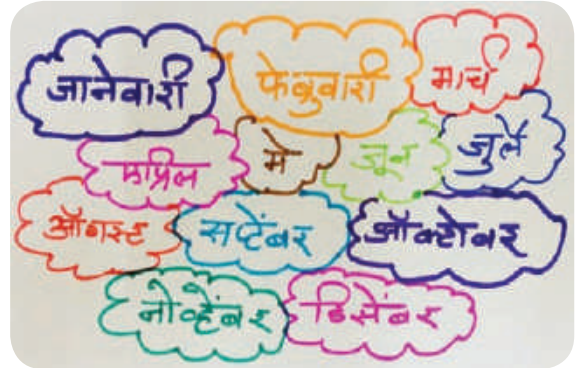 जानेवारी फेब्रुवारी मार्च
एप्रिल मे जून जुलै
ऑगस्ट सप्टेंबर ऑक्टोबर
नोव्हेंबर डिसेंबर